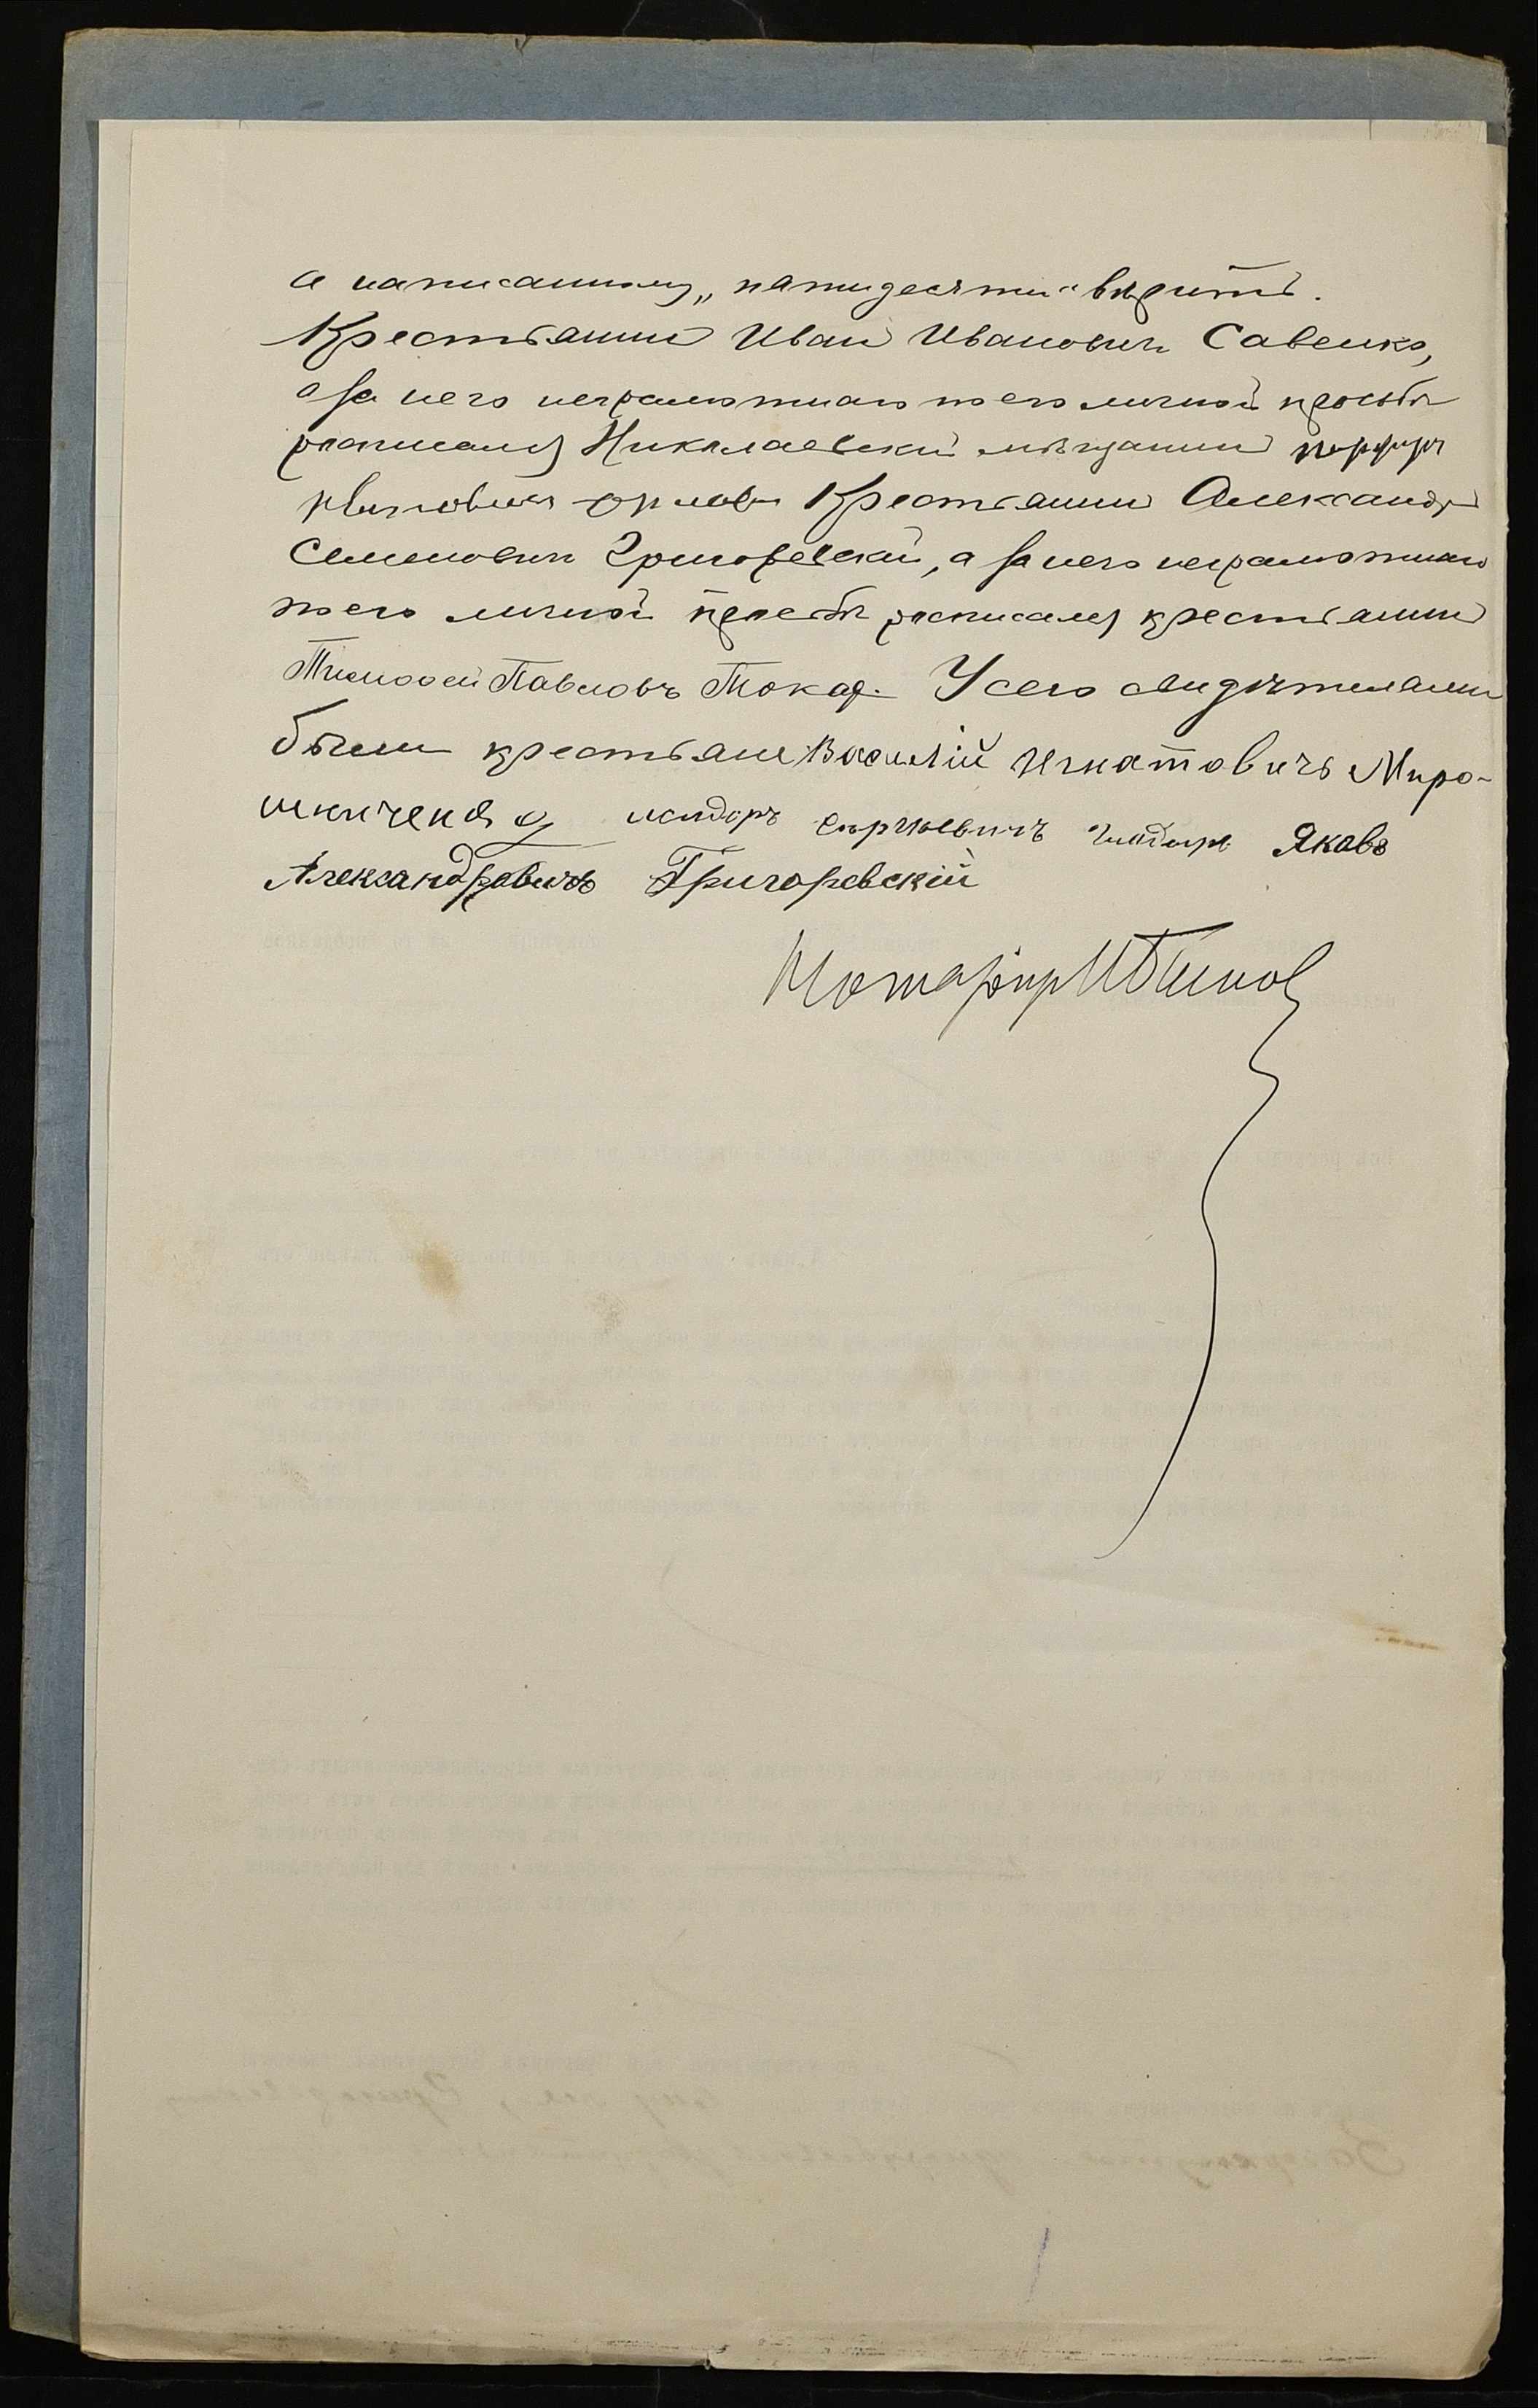 а написанному „пятидесяти“ вѣрить.
Крестьянинъ Иванъ Ивановичъ Савенко,
а за него неграмотнаго по его личной просьбѣ
росписался Николаевскій мѣщанинъ
Орловъ Крестьянинъ Александръ
Семеновичъ Григоревскій, а за него неграмотнаго
по его личной просьбѣ росписался крестьянинъ
Тимоѳей Павловъ Токар. У сего свидѣтелями
были крестьяне Василій Игнатовичъ Миро-
шниченко исидоръ сергѣевичъ Яковъ
Александровичъ Григоревскій
Нотаріусъ